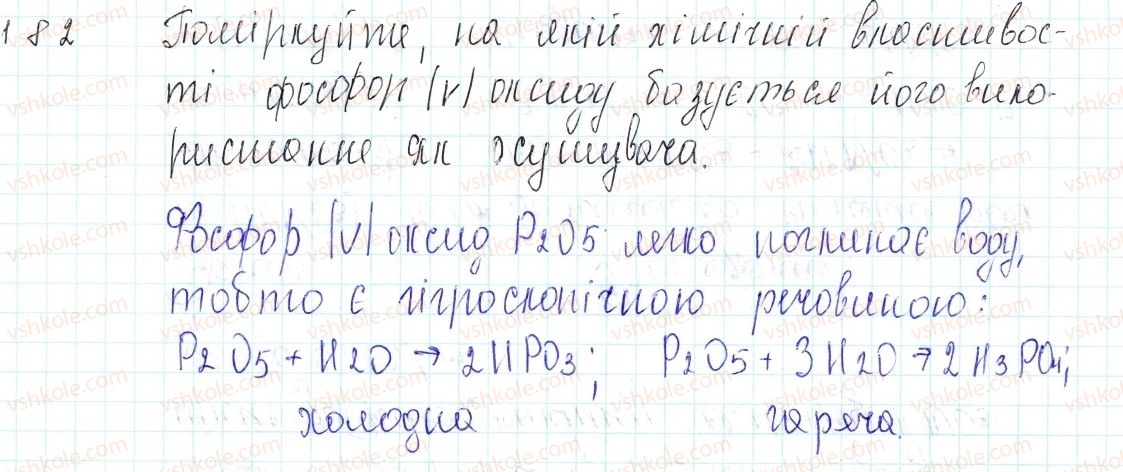 182 Поміркуйте, на якій хімічній властивос-
ті фосфор (V) оксиду базується його вико-
ристання як осушувача.
Фосфор (V) оксид P2O5 легко поглинає воду,
тобто є гігроскопічною речовиною:
P2O5 + H2O → 2HPO3; P2O5 + 3H2O → 2H3PO4;
холодна гаряча.